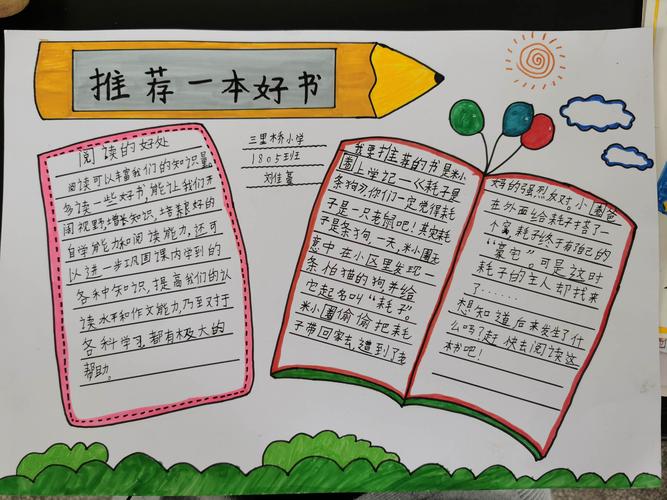 推荐一本好书
三里桥小学
1805班
刘佳
阅读的好处
阅读可以丰富我们的知识量。
多读一些好书,能让我们开
阔视野,增长知识,培养良好的
自学能力和阅读能力,还可
以进一步巩固课内学到的
各种知识,提高我们的认
读水平和作文能力,乃至对于
各科学习,都有极大的
帮助。
我要推荐的书是米小
圈上学记一《耗子是
条狗》你们一定觉得耗
子是一只老鼠吧!其实耗
子是条狗,一天,米小圈无
意中在小区里发现一
条怕猫的狗,并给
它起名叫“耗子”
米小圈偷偷把耗
子带回家去,遭到了老
妈的强烈反对。小圈爸
在外面给耗子搭了一
个窝,耗子终于有自己的
“豪宅”。可是这时
耗子的主人却找来
了……
想知道后来发生了什
么吗?赶快去阅读这
本书吧!